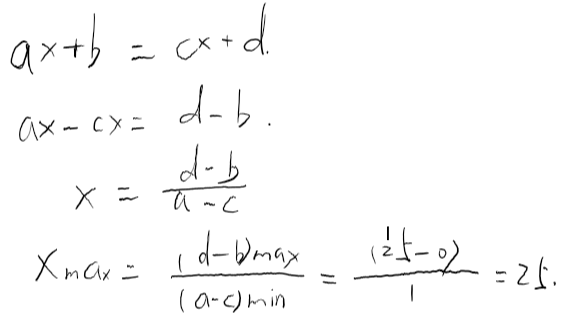 ax+b = cx+d.
ax-cx = d-b.
x = \frac{d-b}{a-c}
x_{max} = \frac{(d-b)max}{(a-c)min} = \frac{(25-0)}{1} = 25.